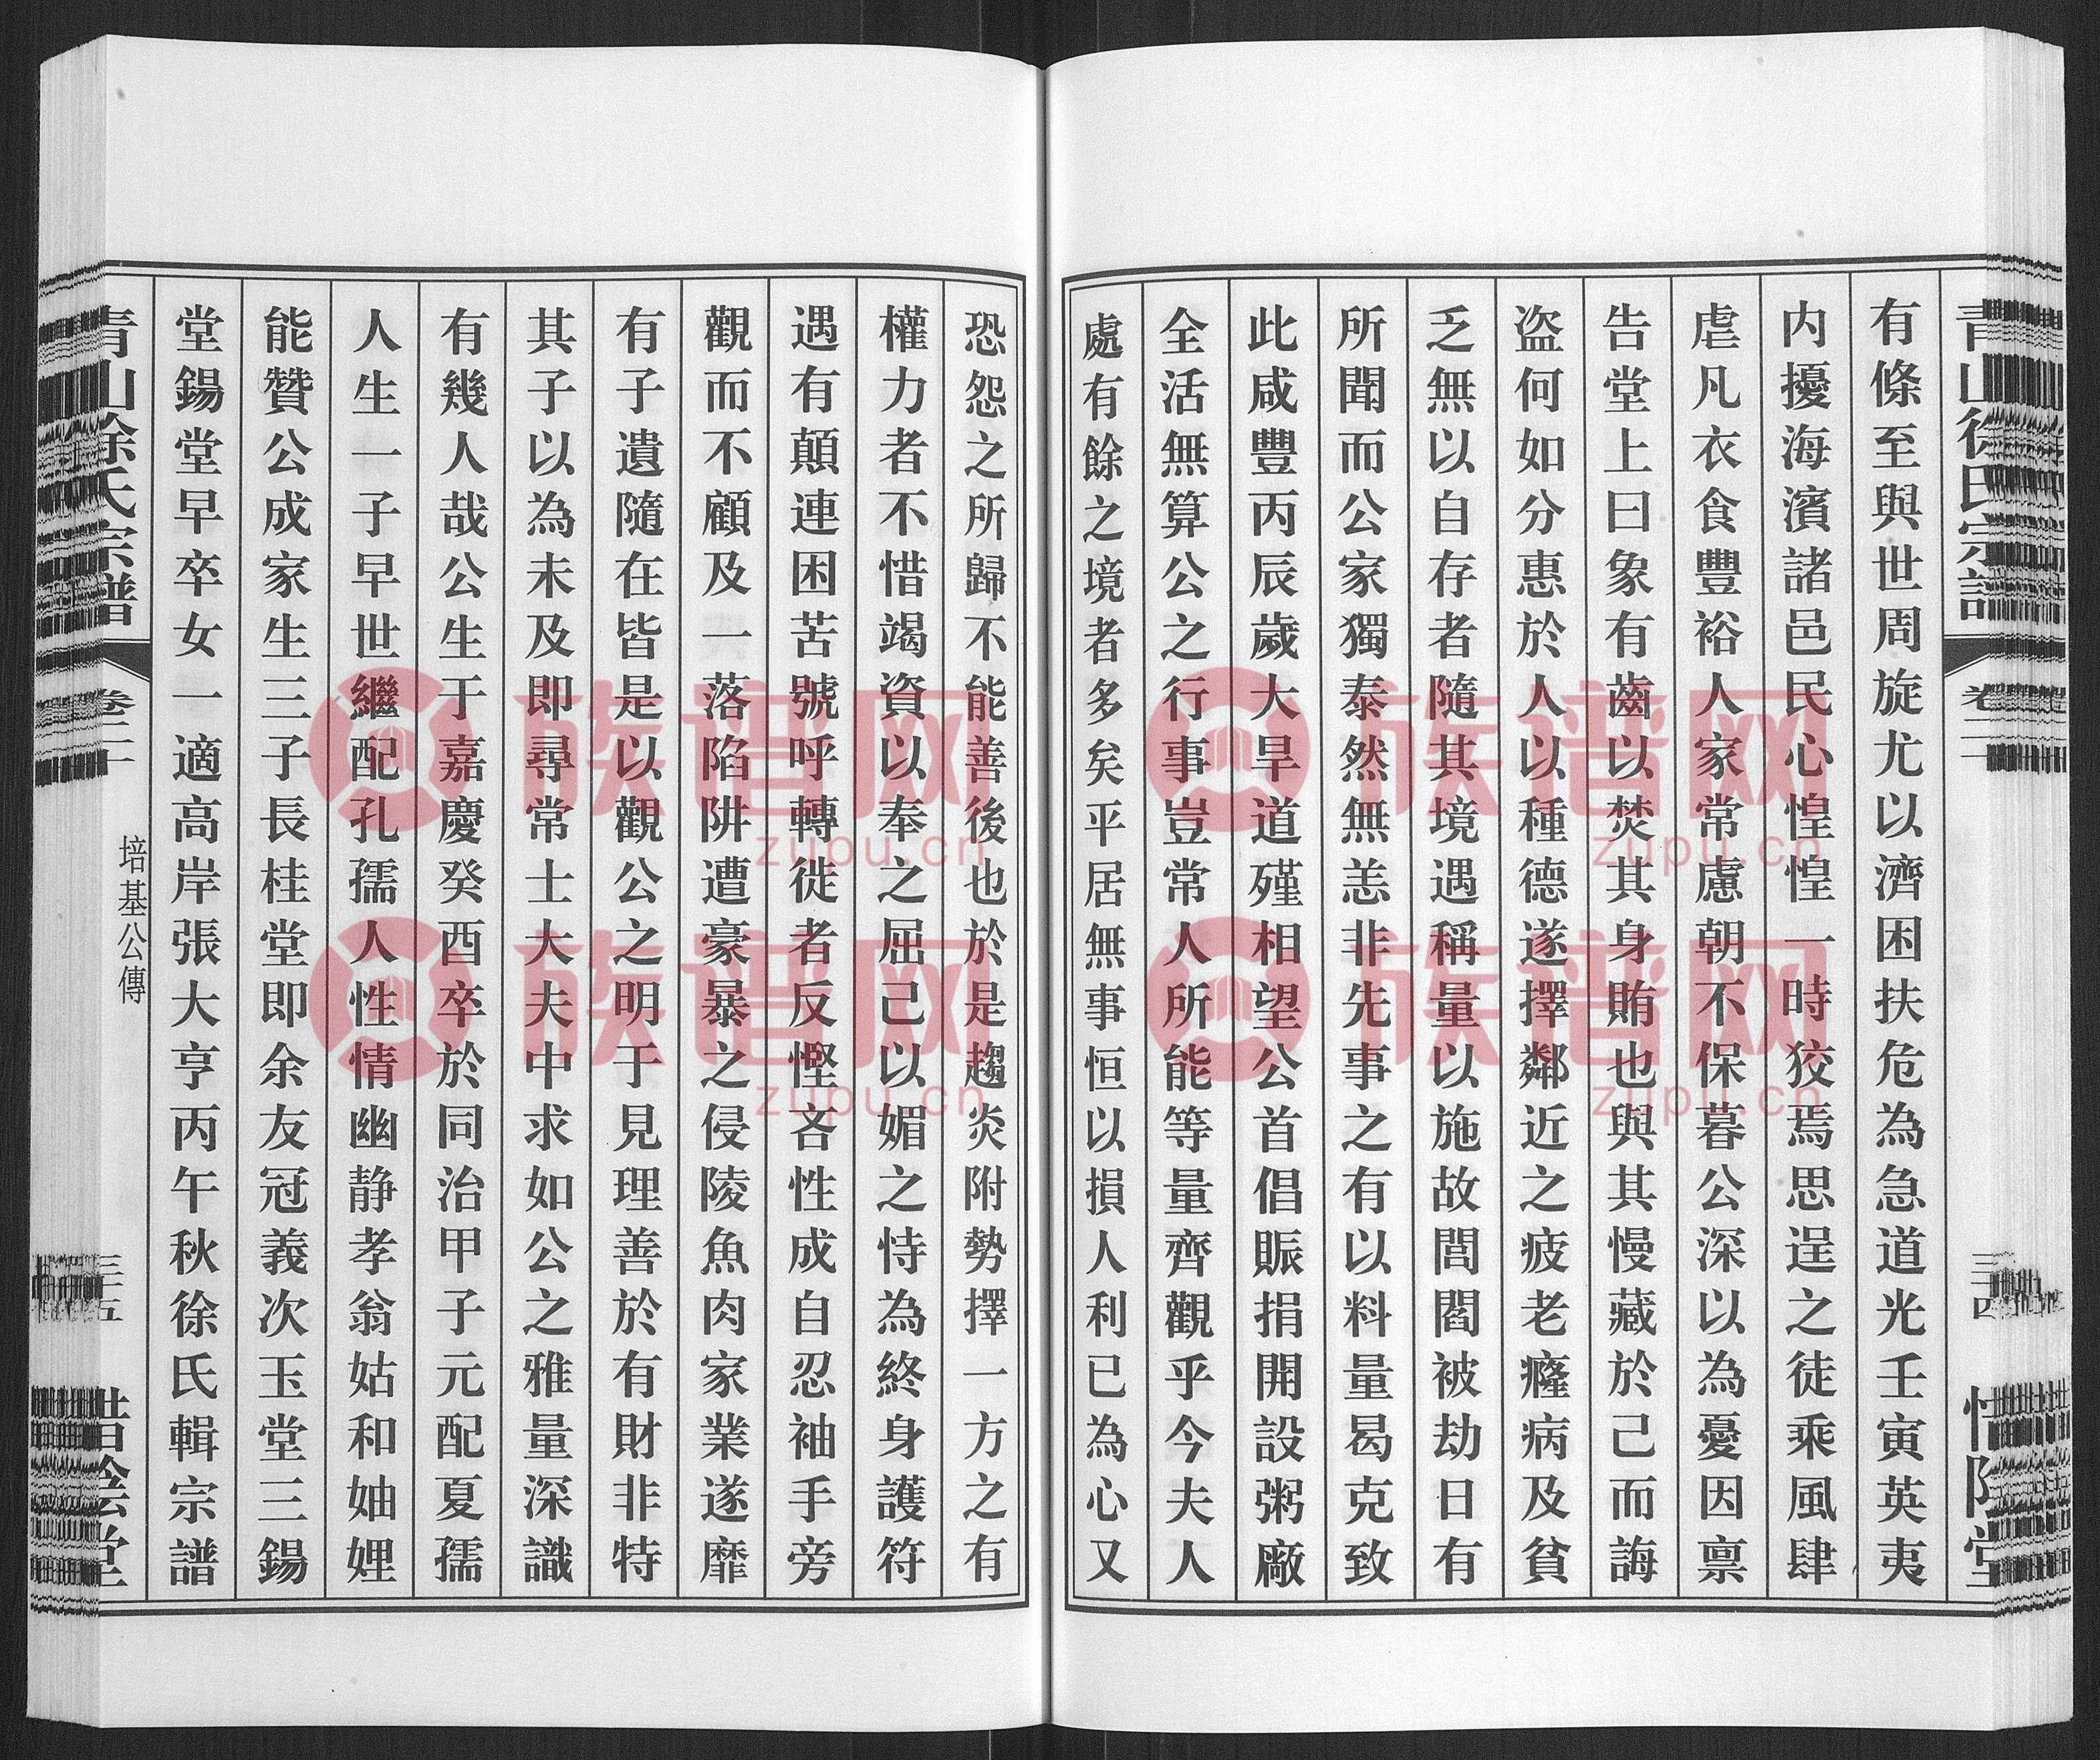 青山徐氏宗譜
卷二十
三十四
惜陰堂
有條至與世周旋尤以濟困扶危為急道光壬寅英夷
内擾海濱諸邑民心惶惶一時狡焉思逞之徒乘風肆
虐凡衣食豐裕人家常慮朝不保暮公深以為憂因禀
告堂上曰象有齒以焚其身賄也與其慢藏於己而誨
盜何如分惠於人以種德遂擇鄰近之疲老癃病及貧
乏無以自存者隨其境遇稱量以施故閭閻被劫日有
所聞而公家獨泰然無恙非先事之有以料量曷克致
此咸豐丙辰歲大旱道殣相望公首倡賑捐開設粥廠
全活無算公之行事豈常人所能等量齊觀乎今夫人
處有餘之境者多矣平居無事恒以損人利已為心又
恐怨之所歸不能善後也於是趨炎附勢擇一方之有
權力者不惜竭資以奉之屈己以媚之恃為終身護符
遇有顛連困苦號呼轉徙者反慳吝性成自忍袖手旁
觀而不顧及一落陷阱遭豪暴之侵陵魚肉家業遂靡
有子遺隨在皆是以觀公之明于見理善於有財非特
其子以為未及即尋常士大夫中求如公之雅量深識
有幾人哉公生于嘉慶癸酉卒於同治甲子元配夏孺
人生一子早世繼配孔孺人性情幽静孝翁姑和妯娌
能贊公成家生三子長桂堂即余友冠義次玉堂三錫
堂錫堂早卒女一適高岸張大亨丙午秋徐氏輯宗譜
青山徐氏宗譜
卷二十
培基公傳
三十五
惜陰堂
族谱网
zupu.cn
族谱网
zupu.cn
族谱网
zupu.cn
族谱网
zupu.cn